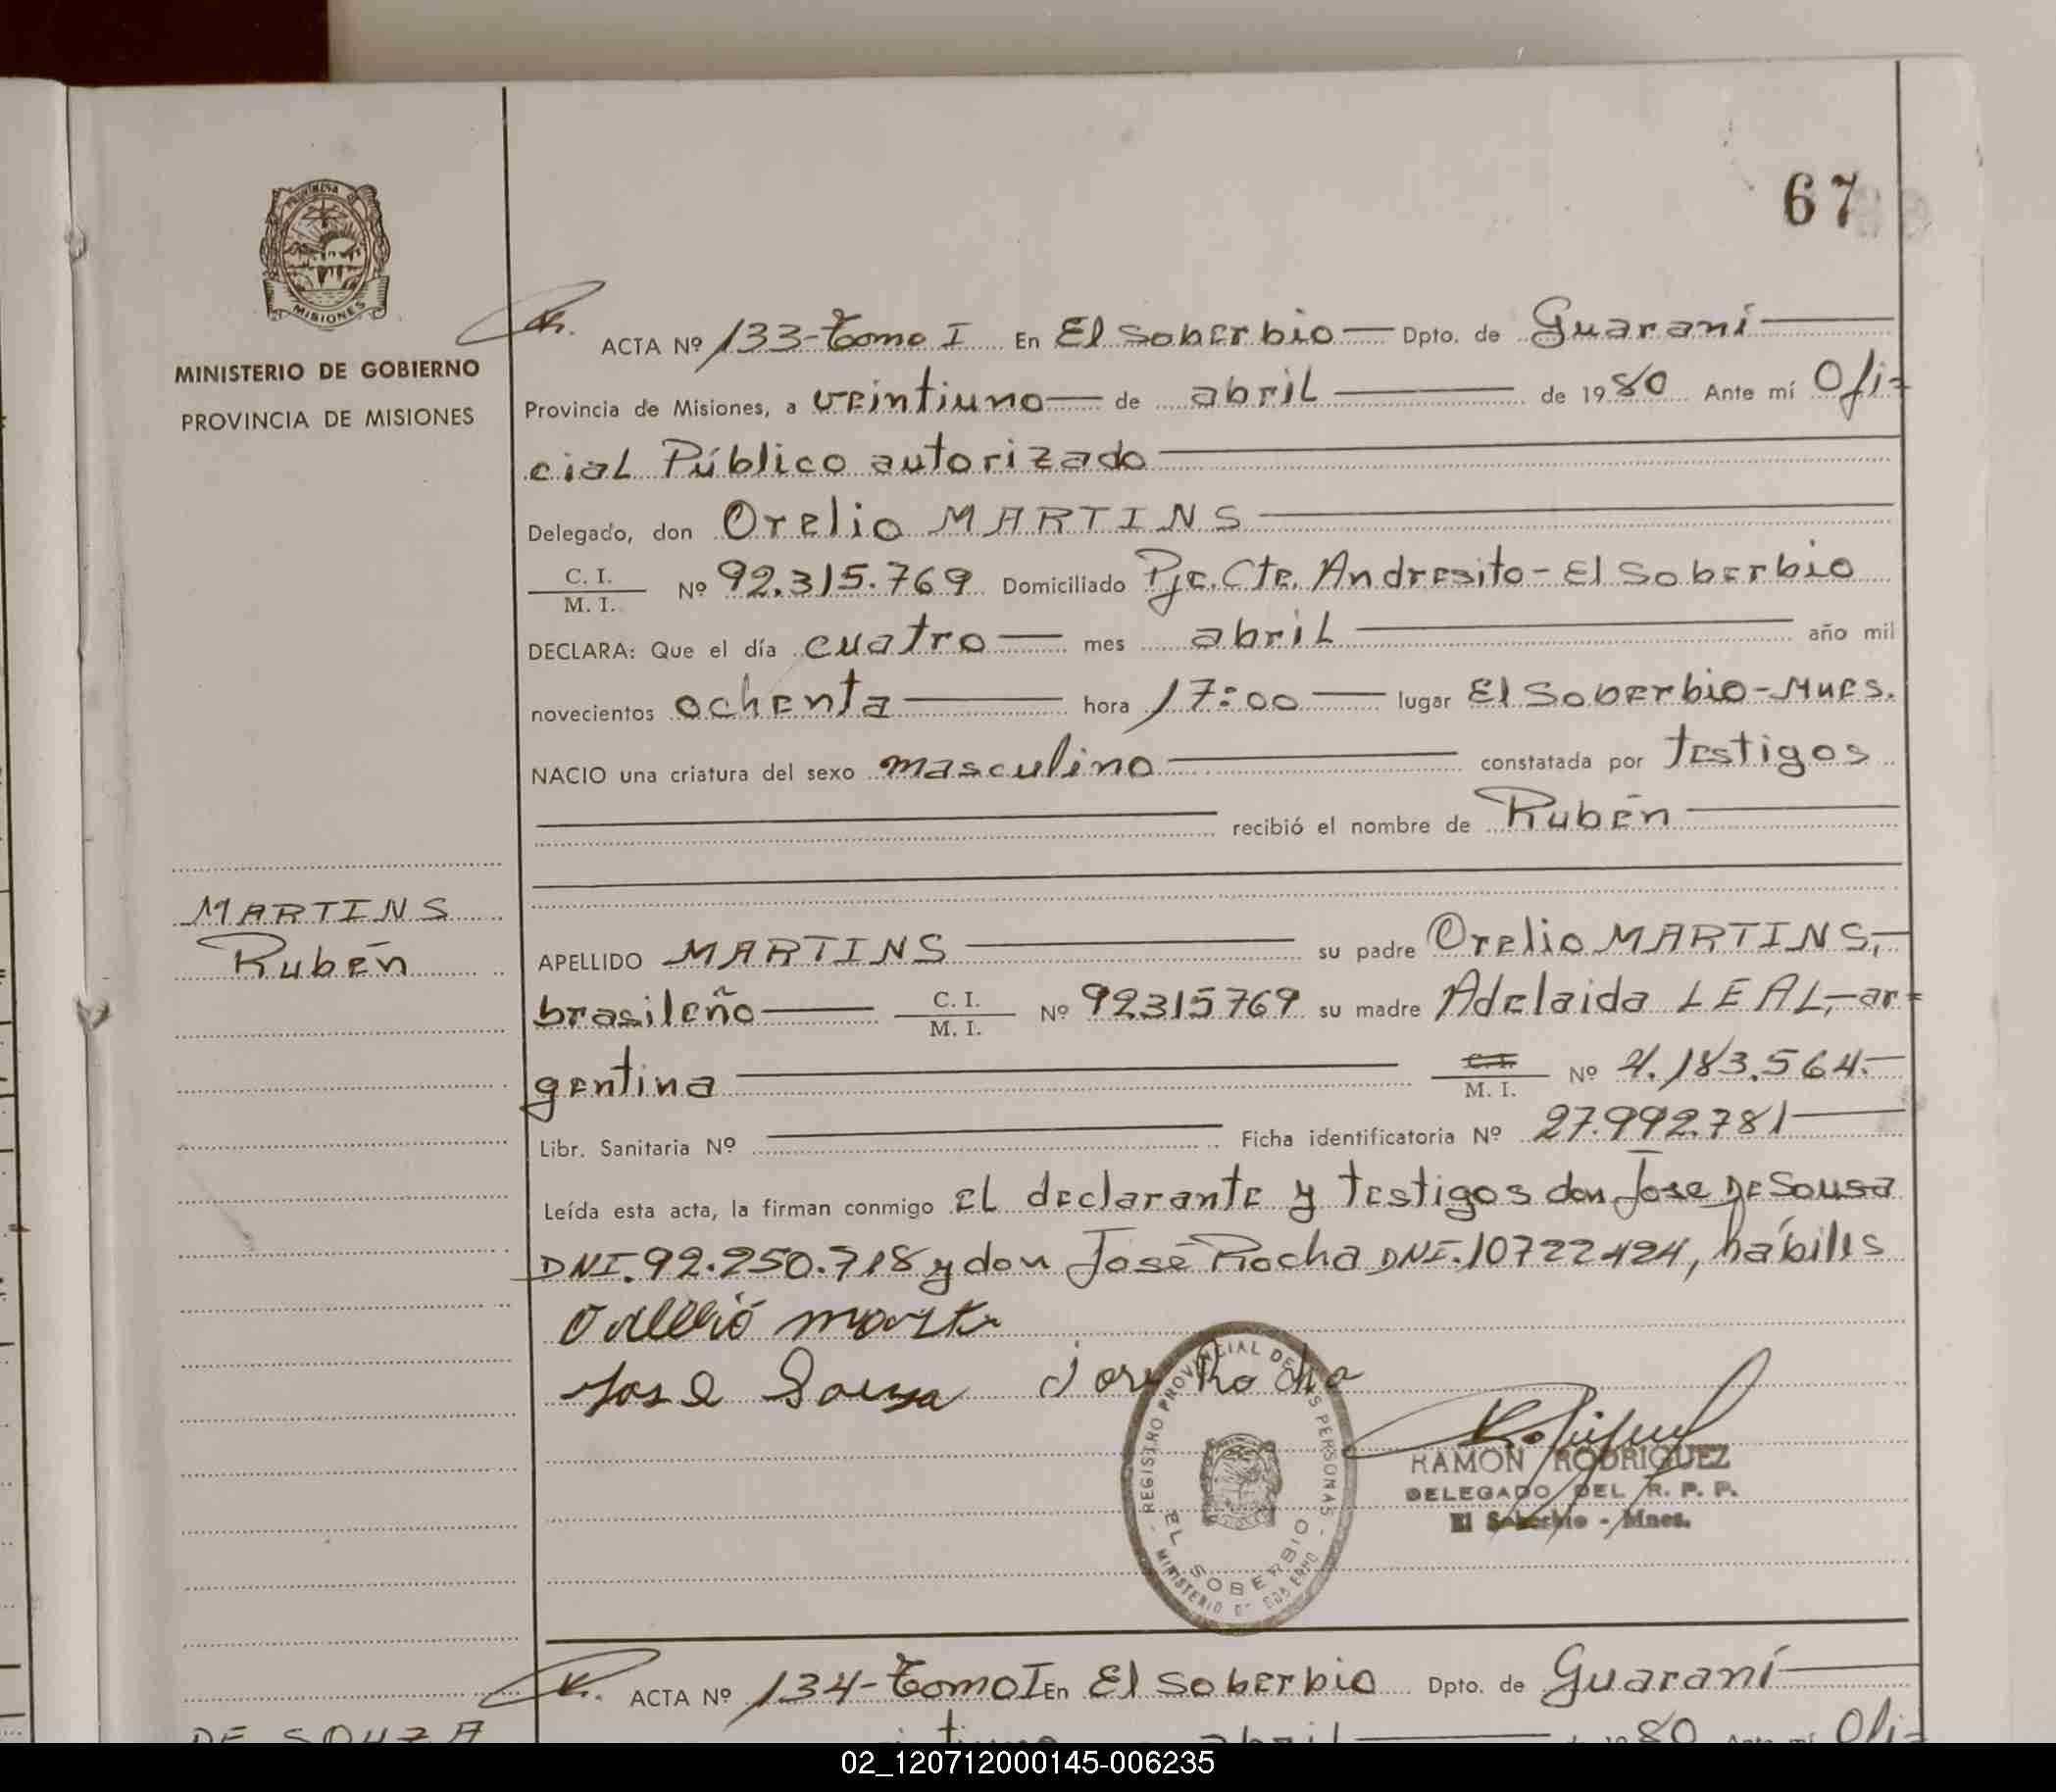 67
MINISTERIO DE GOBIERNO
PROVINCIA DE MISIONES
MISIONES
ACTA Nº 133-Tomo I En El Soberbio Dpto. de Guaraní
Provincia de Misiones, a veintiuno de abril de 1980 Ante mí Ofi=
cial Público autorizado
Delegado, don Orelio MARTINS
C. I.
M. I. Nº 92.315.769 Domiciliado Pje. Cte. Andresito - El Soberbio
DECLARA: Que el día cuatro mes abril año mil
novecientos ochenta hora 17:00 lugar El Soberbio-Mnes.
NACIO una criatura del sexo masculino constatada por testigos
recibió el nombre de Rubén
MARTINS
Rubén
APELLIDO MARTINS su padre Orelio MARTINS,
brasileño C. I.
M. I. Nº 92315769 su madre Adelaida LEAL,-ar=
gentina C. I.
M. I. Nº 4.183.564.
Libr. Sanitaria Nº Ficha identificatoria Nº 27.992.781
Leída esta acta, la firman conmigo el declarante y testigos don Jose De Sousa
DNI. 92.250.718 y don José Rocha DNI. 10722424, hábiles
Jose Souza Jose Rocha
REGISTRO PROVINCIAL DE LAS PERSONAS - MINISTERIO DE GOBIERNO -
EL SOBERBIO
RAMON RODRIGUEZ
DELEGADO DEL R. P. P.
El Soberbio - Mnes.
ACTA Nº 134-Tomo I En El Soberbio Dpto. de Guaraní
DE SOUZA
abril 1980 Ante mí Ofi=
02_120712000145-006235